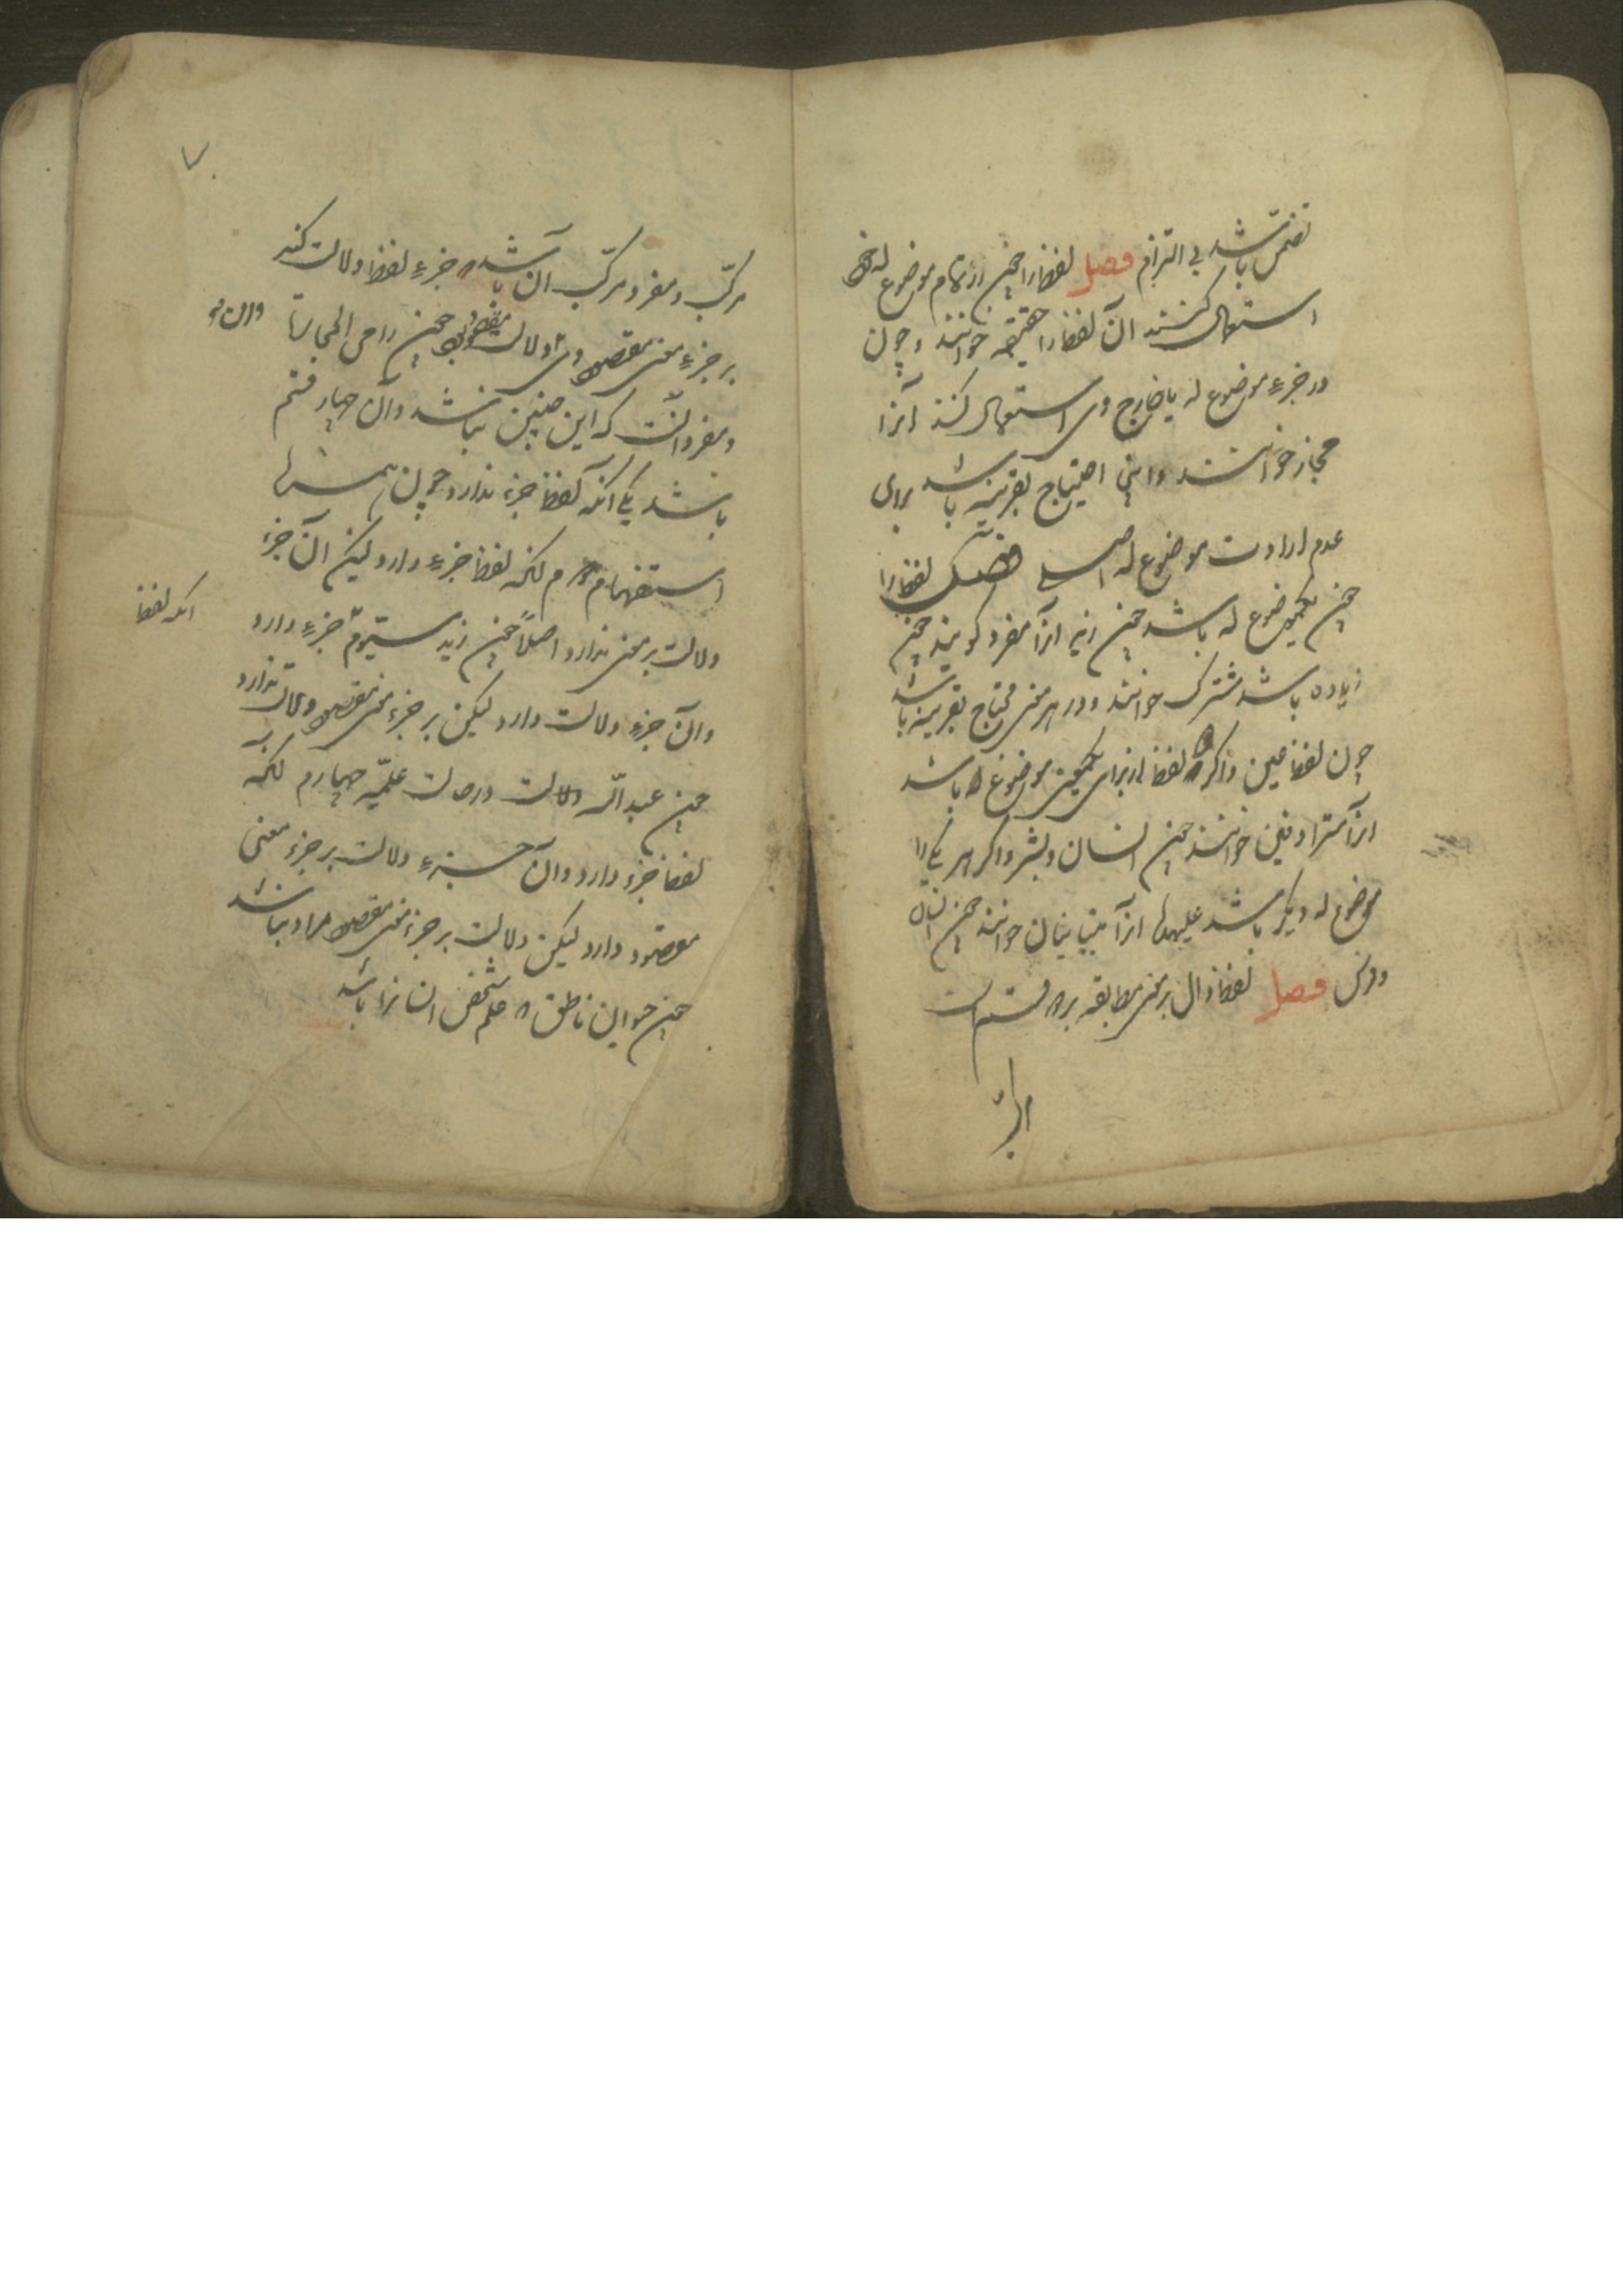 تضمن باشد بی التزام فصل لفظ را چون در تمام موضوع له خود
استعمال کنند آن لفظ را حقیقه خوانند و چون
در جزء موضوع له یا خارج وی استعمال کنند آنرا
مجاز خوانند و این احتیاج بقرینه باشد برای
عدم ارادت موضوع له اصلی فصل لفظ را
چون یک موضوع له باشد چون زید آنرا مفرد گویند چون
زیاده باشد مشترک خوانند و در هر معنی محتاج بقرینه باشد
چون لفظ عین و اگر لفظ از برای یک موضوع له باشد
آنرا مترادفین خوانند چون انسان و بشر و اگر هر یکی را
موضوع له دیگر باشد علیحده آنرا متباینان خوانند چون انسان
و فرس فصل لفظ دال بر معنی بمطابقه بر قسم است
مرکب
مرکب و مفرد مرکب آن باشد جزء لفظ دلالت کند
بر جزء معنی مقصود وی و دلالت مقصود بود چون رامی الحجارة
و مفرد آنست که این چنین نباشد و آن چهار قسم
باشد یکی آنکه لفظ جزء ندارد چون همزه
استفهام دوم آنکه لفظ جزء دارد لیکن آن جزء
دلالت بر معنی ندارد اصلاً چون زید سیوم جزء دارد
آنکه لفظ
و آن جزء دلالت دارد لیکن بر جزء معنی مقصود دلالت ندارد
چون عبد الله دلالت در حالت علمیه چهارم آنکه
لفظ جزء دارد و آن جزء دلالت بر جزء معنی
مقصود دارد لیکن دلالت بر جزء معنی مقصود مراد نباشد
چون حیوان ناطق علم شخص انسانرا باشد